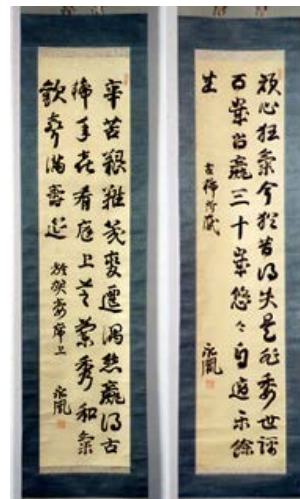 頑心狂氣今猶昔得失是非委世評
百歳尚贏三十歳悠々自適楽餘
生
古稀所感
辛苦艱難幾變遷偶然贏得古
稀年喜看庭上芝蘭秀和氣
歓聲満壽筵
席上